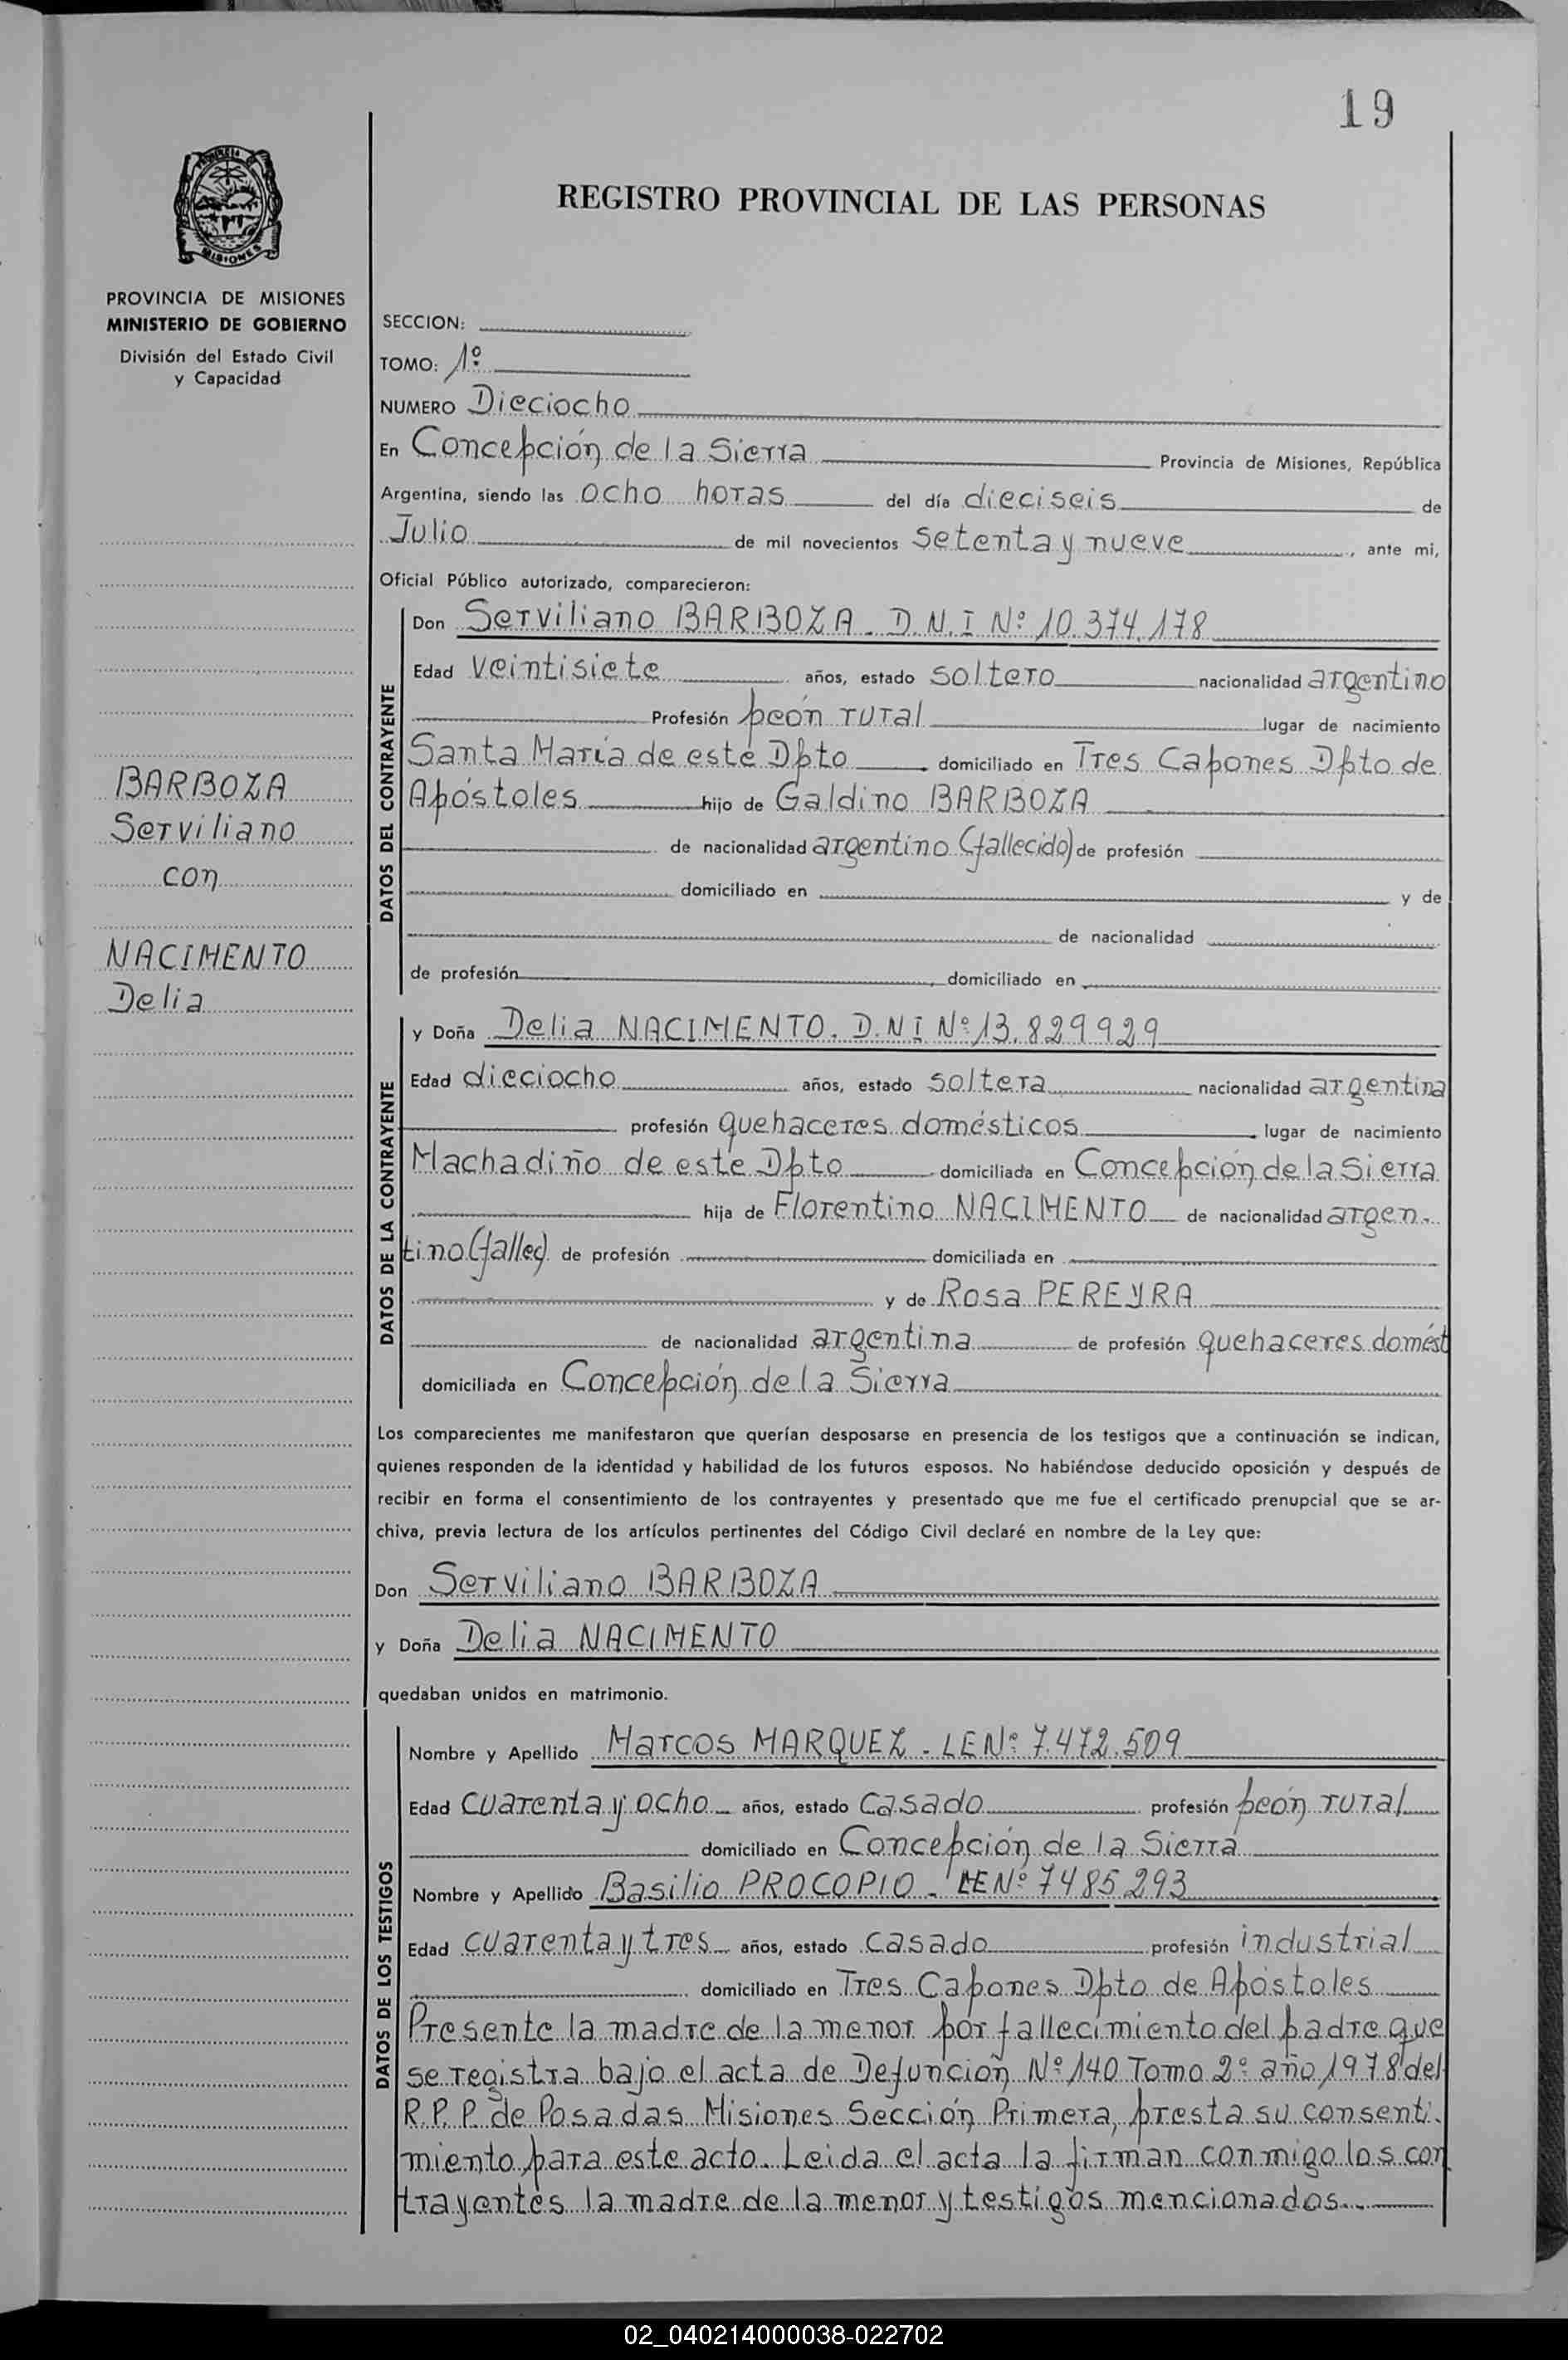 19
PROVINCIA
MISIONES
REGISTRO PROVINCIAL DE LAS PERSONAS
PROVINCIA DE MISIONES
MINISTERIO DE GOBIERNO
División del Estado Civil
y Capacidad
SECCION:
TOMO: 1º
NUMERO Dieciocho
En Concepción de la Sierra Provincia de Misiones, República
Argentina, siendo las ocho horas del día dieciseis de
Julio de mil novecientos setenta y nueve, ante mi,
Oficial Público autorizado, comparecieron:
BARBOZA
Serviliano
con
NACIMENTO
Delia
DATOS DEL CONTRAYENTE
Don Serviliano BARBOZA. D.N.I Nº 10.374.178
Edad veintisiete años, estado soltero nacionalidad argentino
Profesión peón rural lugar de nacimiento
Santa María de este Dpto domiciliado en Tres Capones Dpto de
Apóstoles hijo de Galdino BARBOZA
de nacionalidad argentino (fallecido) de profesión
domiciliado en y de
de nacionalidad
de profesión , domiciliado en
DATOS DE LA CONTRAYENTE
y Doña Delia NACIMENTO. D.N.I Nº 13.829929
Edad dieciocho años, estado soltera nacionalidad argentina
profesión quehaceres domésticos lugar de nacimiento
Machadiño de este Dpto domiciliada en Concepción de la Sierra
hija de Florentino NACIMENTO de nacionalidad argen-
tino (fallec) de profesión domiciliada en
y de Rosa PEREYRA
de nacionalidad argentina de profesión quehaceres domést
domiciliada en Concepción de la Sierra
Los comparecientes me manifestaron que querían desposarse en presencia de los testigos que a continuación se indican,
quienes responden de la identidad y habilidad de los futuros esposos. No habiéndose deducido oposición y después de
recibir en forma el consentimiento de los contrayentes y presentado que me fue el certificado prenupcial que se ar-
chiva, previa lectura de los artículos pertinentes del Código Civil declaré en nombre de la Ley que:
Don Serviliano BARBOZA
y Doña Delia NACIMENTO
quedaban unidos en matrimonio.
DATOS DE LOS TESTIGOS
Nombre y Apellido Marcos MARQUEZ - LE Nº 7.472.509
Edad cuarenta y ocho años, estado casado profesión peón rural
domiciliado en Concepción de la Sierra
Nombre y Apellido Basilio PROCOPIO - LE Nº 7485293
Edad cuarenta y tres años, estado casado profesión industrial
domiciliado en Tres Capones Dpto de Apóstoles
Presente la madre de la menor por fallecimiento del padre que
se registra bajo el acta de Defunción Nº 140 Tomo 2º año 1978 del
R.P.P. de Posadas Misiones Sección Primera, presta su consenti-
miento para este acto. Leida el acta la firman conmigo los con
trayentes la madre de la menor y testigos mencionados.-
02_040214000038-022702